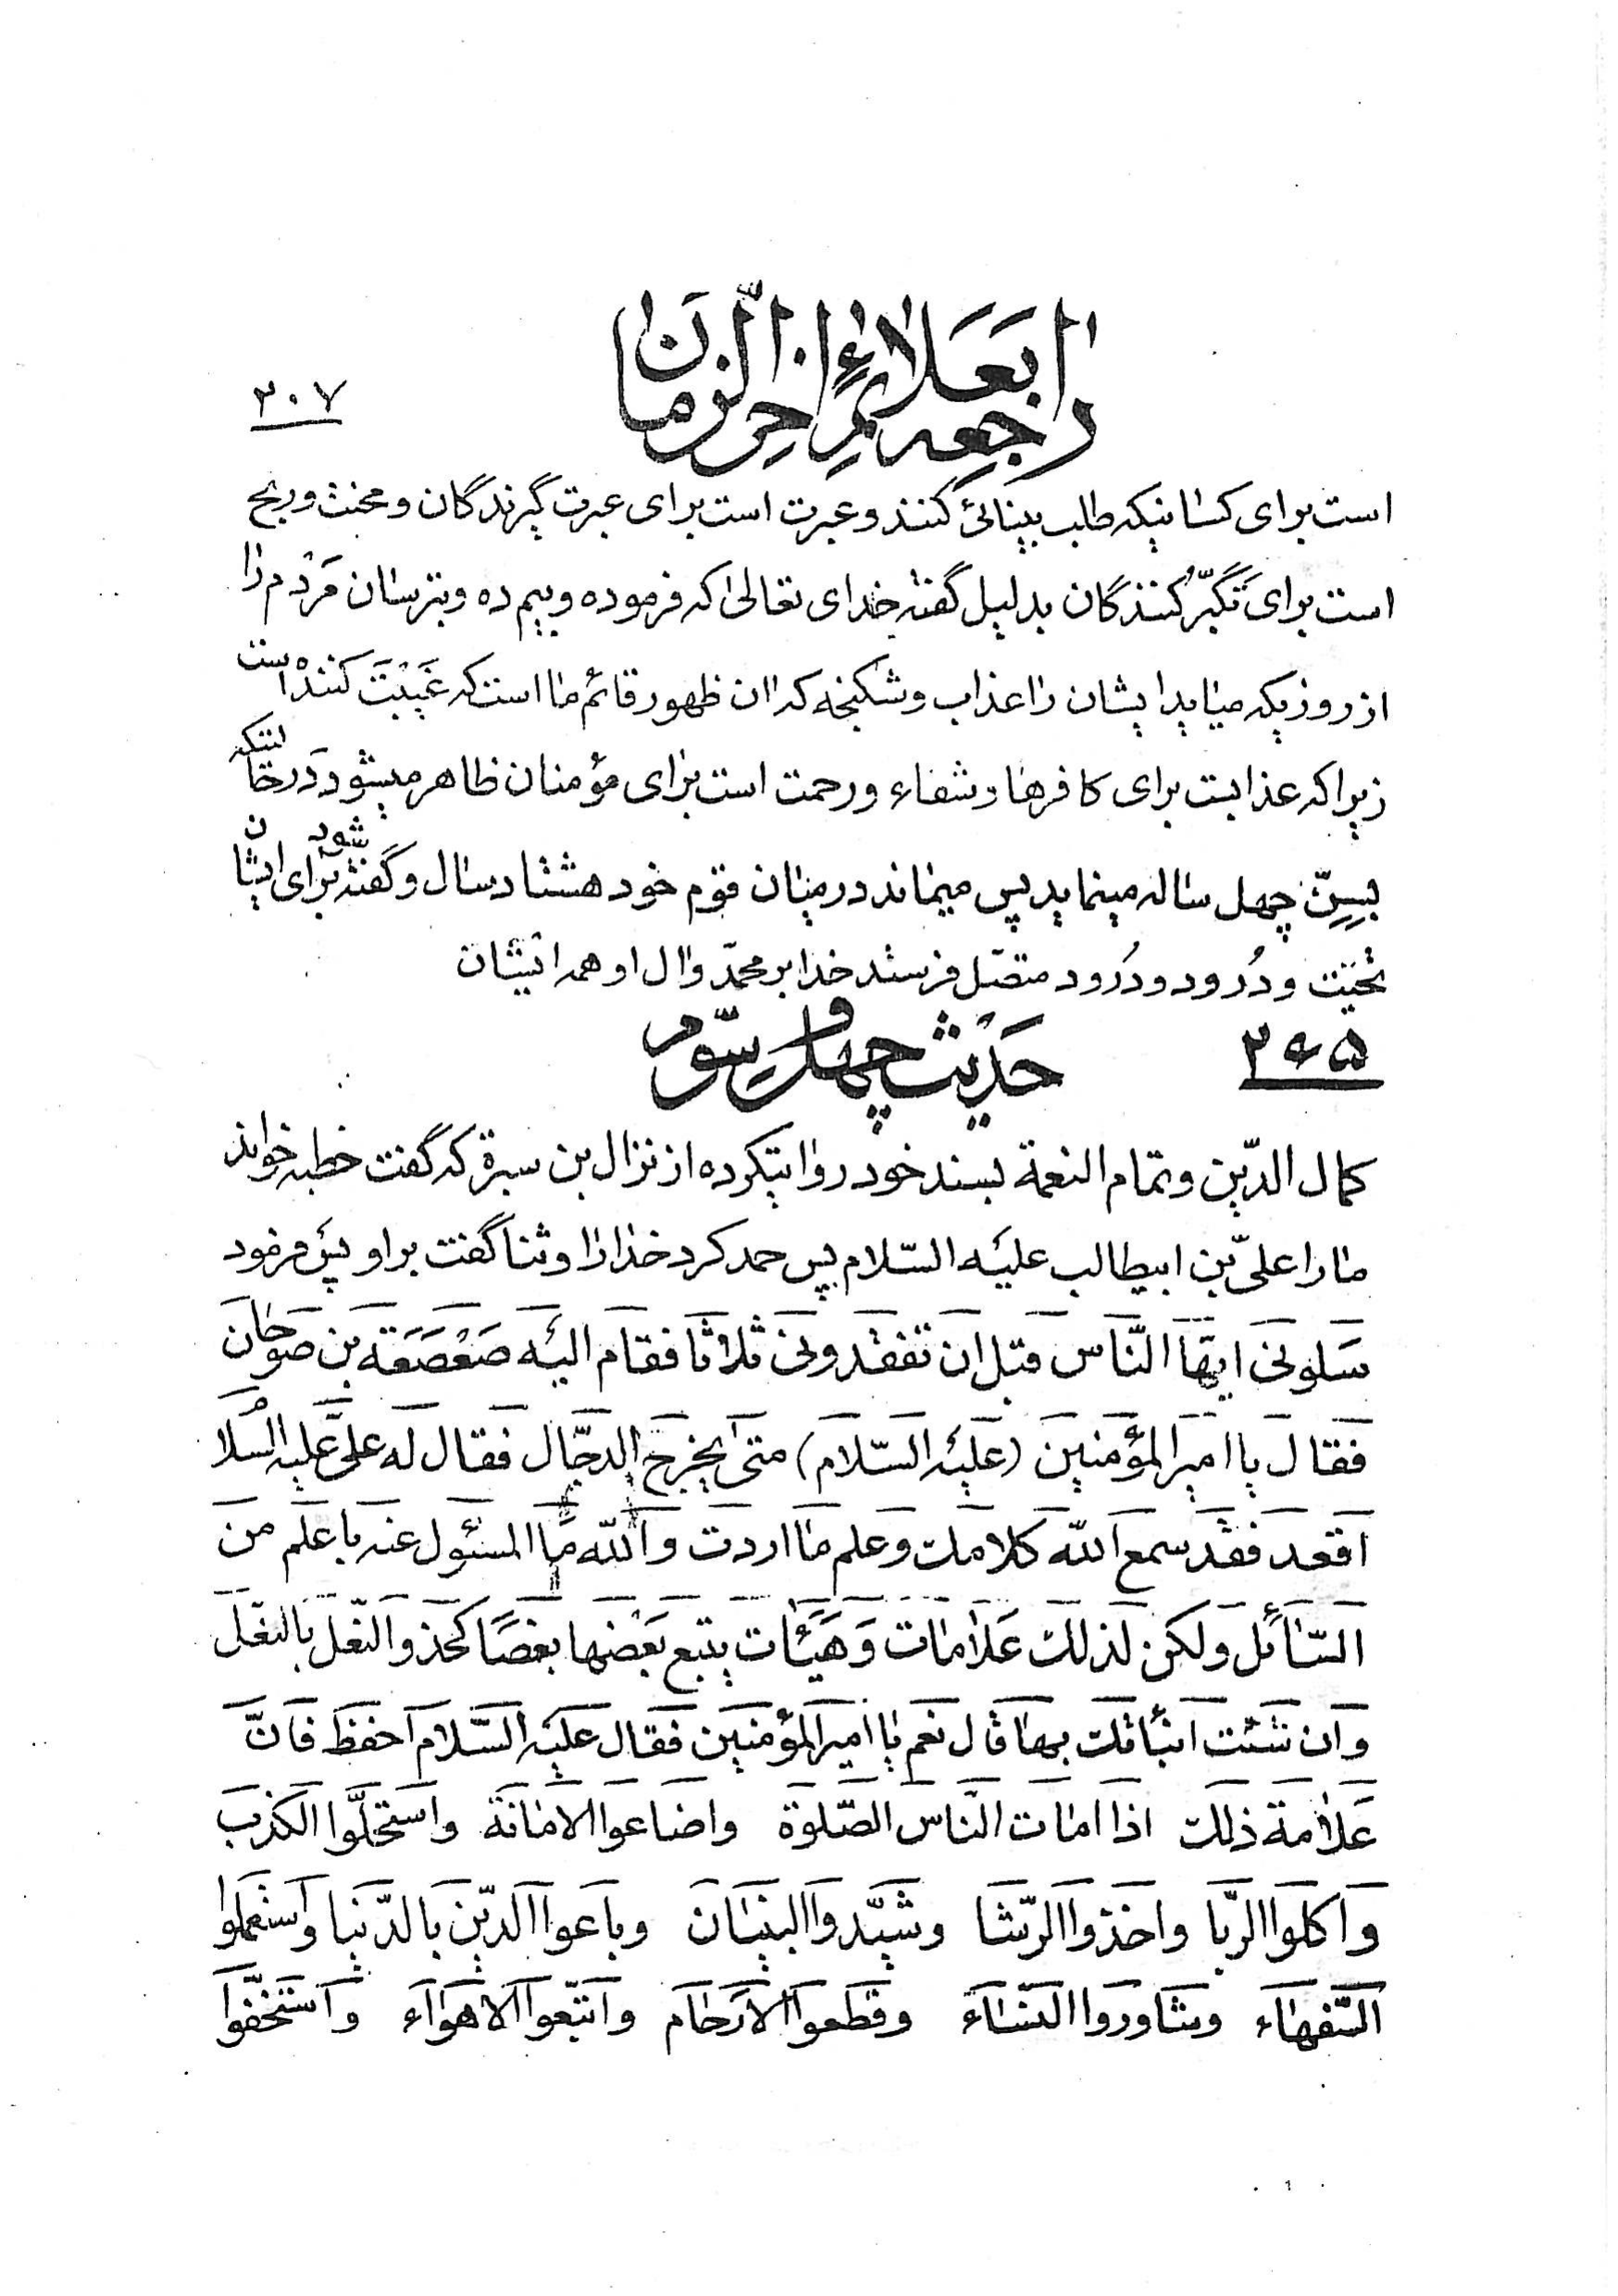 راجعه بعلائم اخر الزمان
۲۰۷
است برای کسانیکه طلب بینائی کنند و عبرت است برای عبرت گیرندگان و محنت و رنج
است برای تکبّر کنندگان بدلیل گفته خدای تعالی که فرموده و بیم ده و بترسان مردم را
از روزیکه میاید ایشان را عذاب و شکنجه که ان ظهور قائم ما است که غیبت کننده است
زیرا که عذابیست برای کافرها و شفاء و رحمت است برای مؤمنان ظاهر میشود در حالتیکه
بسِنّ چهل ساله مینماید پس میماند در میان قوم خود هشتاد سال و گفته شود برای ایشان
تحیّت و دُرود و دُرود متصّل فرستد خدا بر محمّد و ال او همه ایشان
حدیث چهل و سوّم
۲۶۵
کمال الدّین و تمام النعمة بسند خود روایتکرده از نزال بن سبرة که گفت خطبه خواند
ما را علیّ بن ابیطالب علیه السّلام پس حمد کرد خدا را و ثنا گفت بر او پس فرمود
سَلونی ایّها النّاس قبل ان تفقدونی ثلاثا فقام الیه صَعْصَعَة بن صوحان
فقال یا امیر المؤمنین (علیه السّلام) متی یخرج الدجّال فقال له علیّ علیه السّلام
اقعد فقد سمع الله کلامك و علم ما اردت و الله ما المسئول عنه باعلم من
السّائل ولکن لذلك عَلامات وَ هَیَئات یتبع بَعْضها بعضًا کحذو النّعل بالنعل
و ان شئت انبأتك بها قال نعم یا امیر المؤمنین فقال علیه السّلام احفظ فانّ
عَلامة ذلك اذا امات النّاس الصّلوة و اضاعوا الامانة و استحلّوا الکذب
و اکلوا الرّبا و اخذوا الرّشا و شیّدوا البنیان و باعوا الدّین بالدّنیا و استعملوا
السّفهاء و شاوروا النّساء و قطعوا الارحام و اتّبعوا الاهواء و استخفّوا